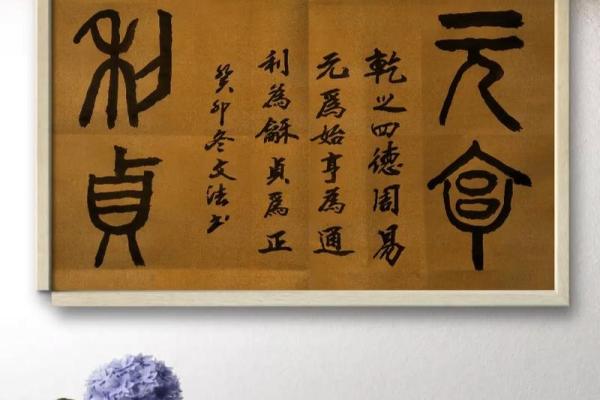 元亨
乾之四德周易
元爲始亨為通
利為龢貞爲正
癸卯冬文法书
利貞